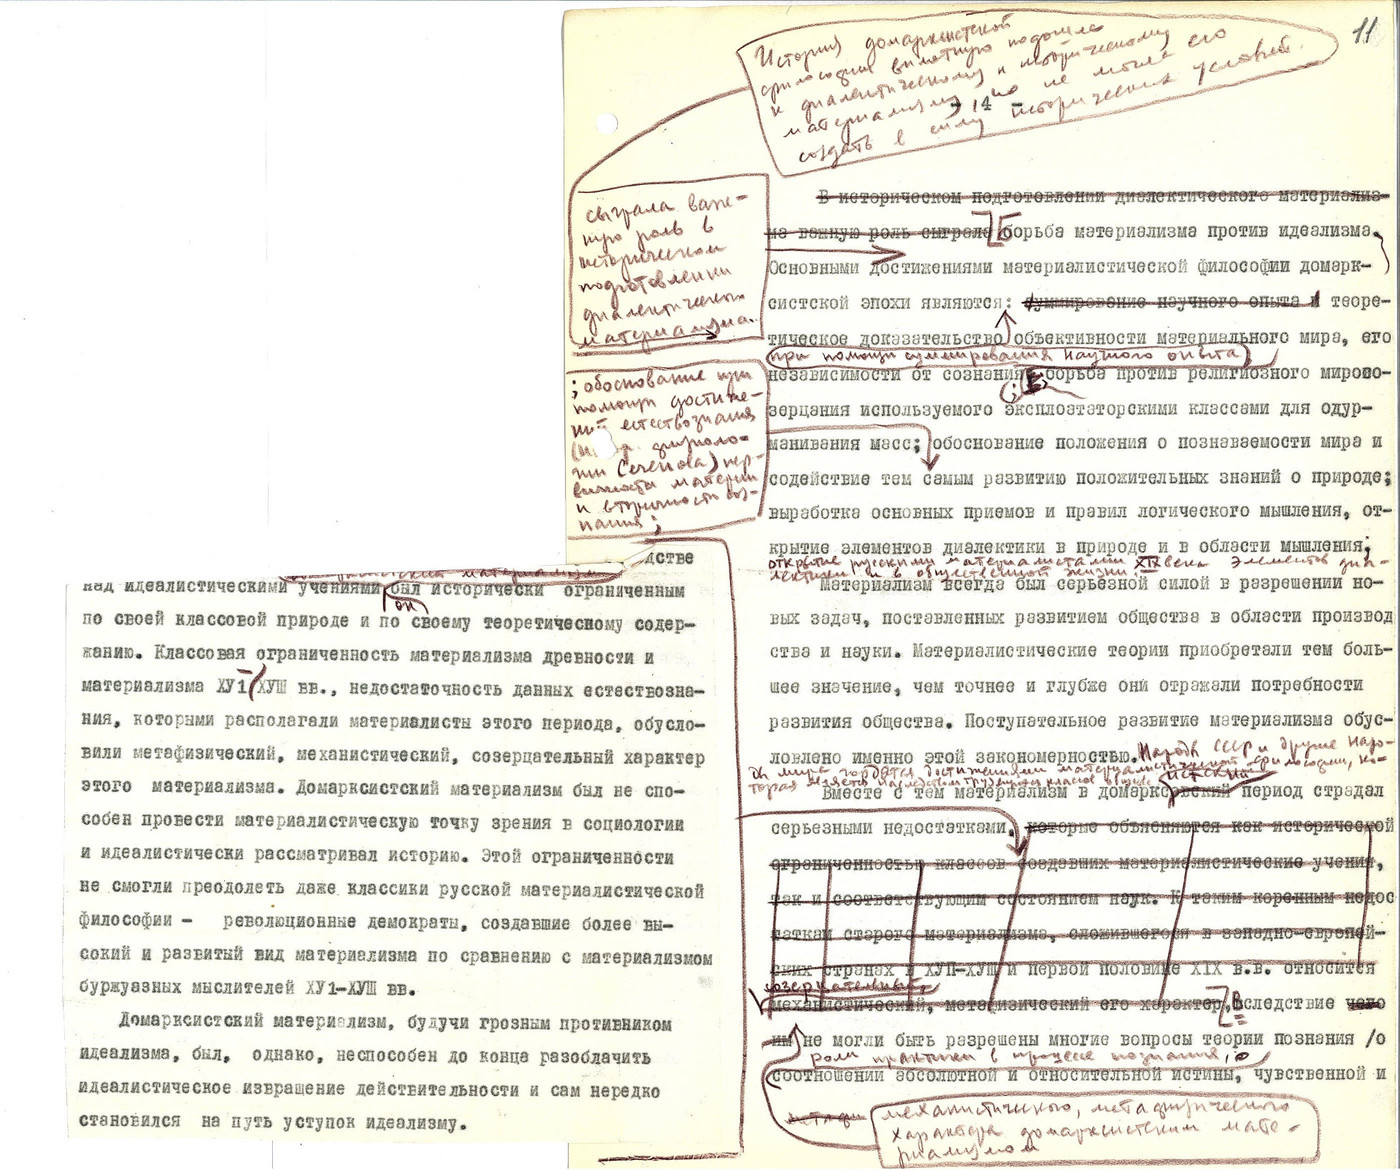 11
История домарксистской
философии вплотную подошла
к диалектическому и историческому
материализму, но не могла его
создать в силу исторических условий.
- 14 -
В историческом подготовлении диалектического материализ-
ма важную роль сыграла борьба материализма против идеализма.
сыграла важ-
ную роль в
историческом
подготовлении
диалектического
материализма.
Основными достижениями материалистической философии домарк-
систской эпохи являются: суммирование научного опыта и теоре-
тическое доказательство объективности материального мира, его
при помощи суммирования научного опыта
независимости от сознания; борьба против религиозного мирово-
зерцания используемого эксплоататорскими классами для одур-
манивания масс; обоснование положения о познаваемости мира и
; обоснование при
помощи достиже-
ний естествознания
физиоло-
гии Сеченова) пер-
вичности материи
и вторичности соз-
нания;
содействие тем самым развитию положительных знаний о природе;
выработка основных приемов и правил логического мышления, от-
крытие элементов диалектики в природе и в области мышления;
открытие русскими материалистами XIX века элементов диа-
лектики и в общественной жизни.
Материализм всегда был серьезной силой в разрешении но-
вых задач, поставленных развитием общества в области производ
ства и науки. Материалистические теории приобретали тем боль-
шее значение, чем точнее и глубже они отражали потребности
развития общества. Поступательное развитие материализма обус-
ловлено именно этой закономерностью. Народы СССР и другие наро-
ды мира гордятся достижениями материалистической философии, ко-
торая является
Вместе с тем материализм в домарксовский период страдал
серьезными недостатками, которые объясняются как исторической
ограниченностью классов создавших материалистические учения,
так и соответствующим состоянием наук. К таким коренным недос
таткам старого материализма, сложившегося в западно-европей-
ских странах в ХУП-ХУШ и первой половине XIX в.в. относится
созерцательный,
механистический, метафизический его характер, Вследствие чего
им не могли быть разрешены многие вопросы теории познания /о
роли практики в процессе познания, о
соотношении абсолютной и относительной истины, чувственной и
метафи
механистического, метафизического
характера домарксистским мате-
риализмом
дстве
материализм
над идеалистическими учениями был исторически ограниченным
он
по своей классовой природе и по своему теоретическому содер-
жанию. Классовая ограниченность материализма древности и
материализма ХУ1-ХУШ вв., недостаточность данных естествозна-
ния, которыми располагали материалисты этого периода, обусло-
вили метафизический, механистический, созерцательный характер
этого материализма. Домарксистский материализм был не спо-
собен провести материалистическую точку зрения в социологии
и идеалистически рассматривал историю. Этой ограниченности
не смогли преодолеть даже классики русской материалистической
философии - революционные демократы, создавшие более вы-
сокий и развитый вид материализма по сравнению с материализмом
буржуазных мыслителей ХУ1-ХУШ вв.
Домарксистский материализм, будучи грозным противником
идеализма, был, однако, неспособен до конца разоблачить
идеалистическое извращение действительности и сам нередко
становился на путь уступок идеализму.